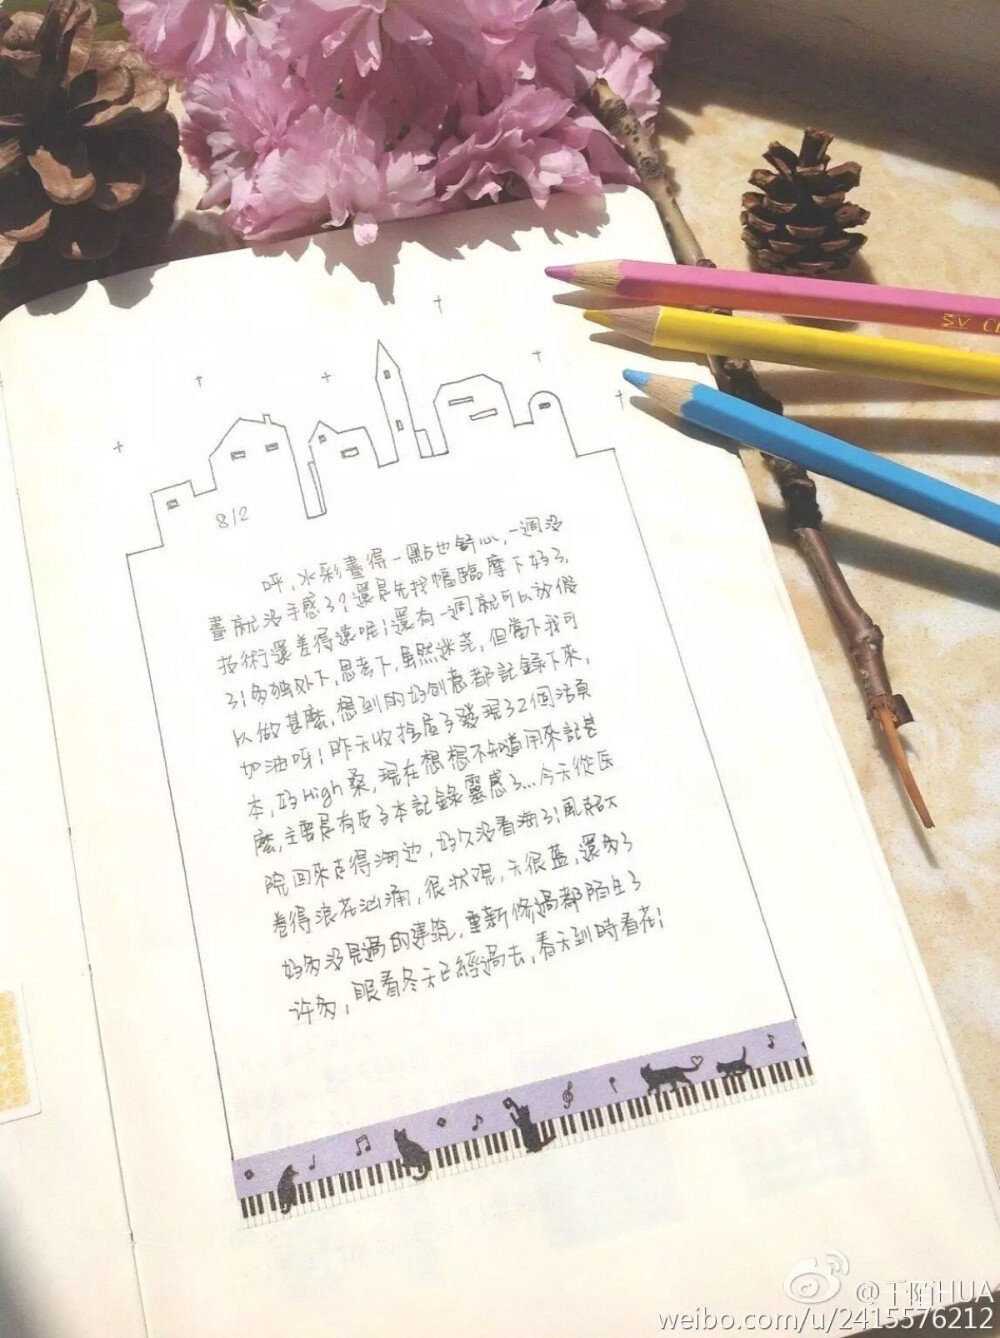 812
呼，水彩畫得一點也舒心，一週沒
畫就沒手感了？還是先找幅臨摩下好了，
技術還差得遠呢！還有一週就可以放假
了！多獨处下，思考下，虽然迷茫，但當下我可
以做甚麼，想到的好創意都記錄下來，
加油呀！昨天收拾屋子發現32個活頁
本，好High桑，現在想想不知道用來記甚
麼，主要是有皮子本記錄靈感了…今天從医
院回來走得海边，好久没看海了！風起大
卷得浪花汹涌，很状观，天很蓝，還多了
好多沒見過的建筑，重新修過都陌生了
许多，眼看冬天已經過去，春天到時看花！
@千陌HUA
weibo.com/u/2415576212